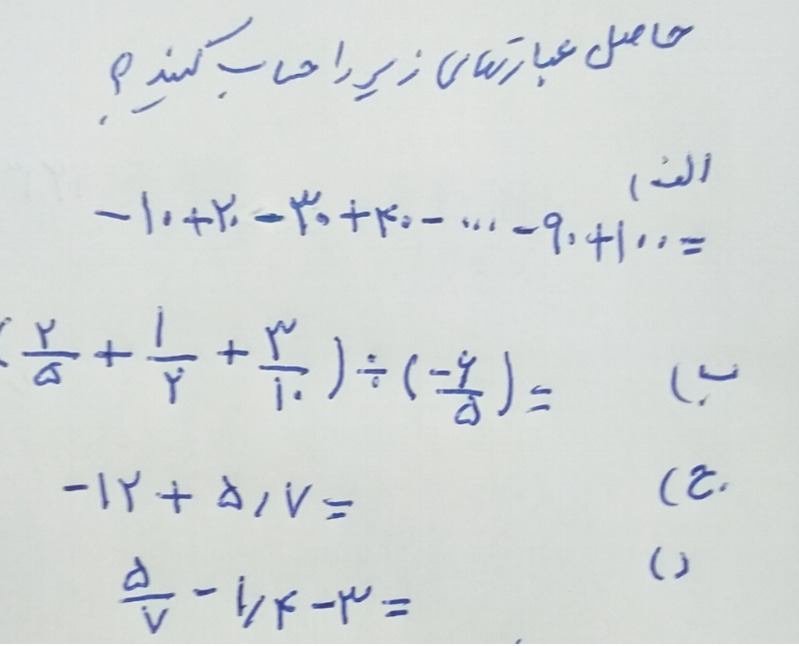 حاصل عبارتهای زیر را حساب کنید؟
الف)
-۱۰+۲۰-۳۰+۴۰-...-۹۰+۱۰۰=
ب) (۲/۵ + ۱/۲ + ۳/۱۰) ÷ (-۶/۵) =
ج) -۱۲ + ۵٫۷ =
د) ۵/۷ - ۱٫۴ - ۳ =